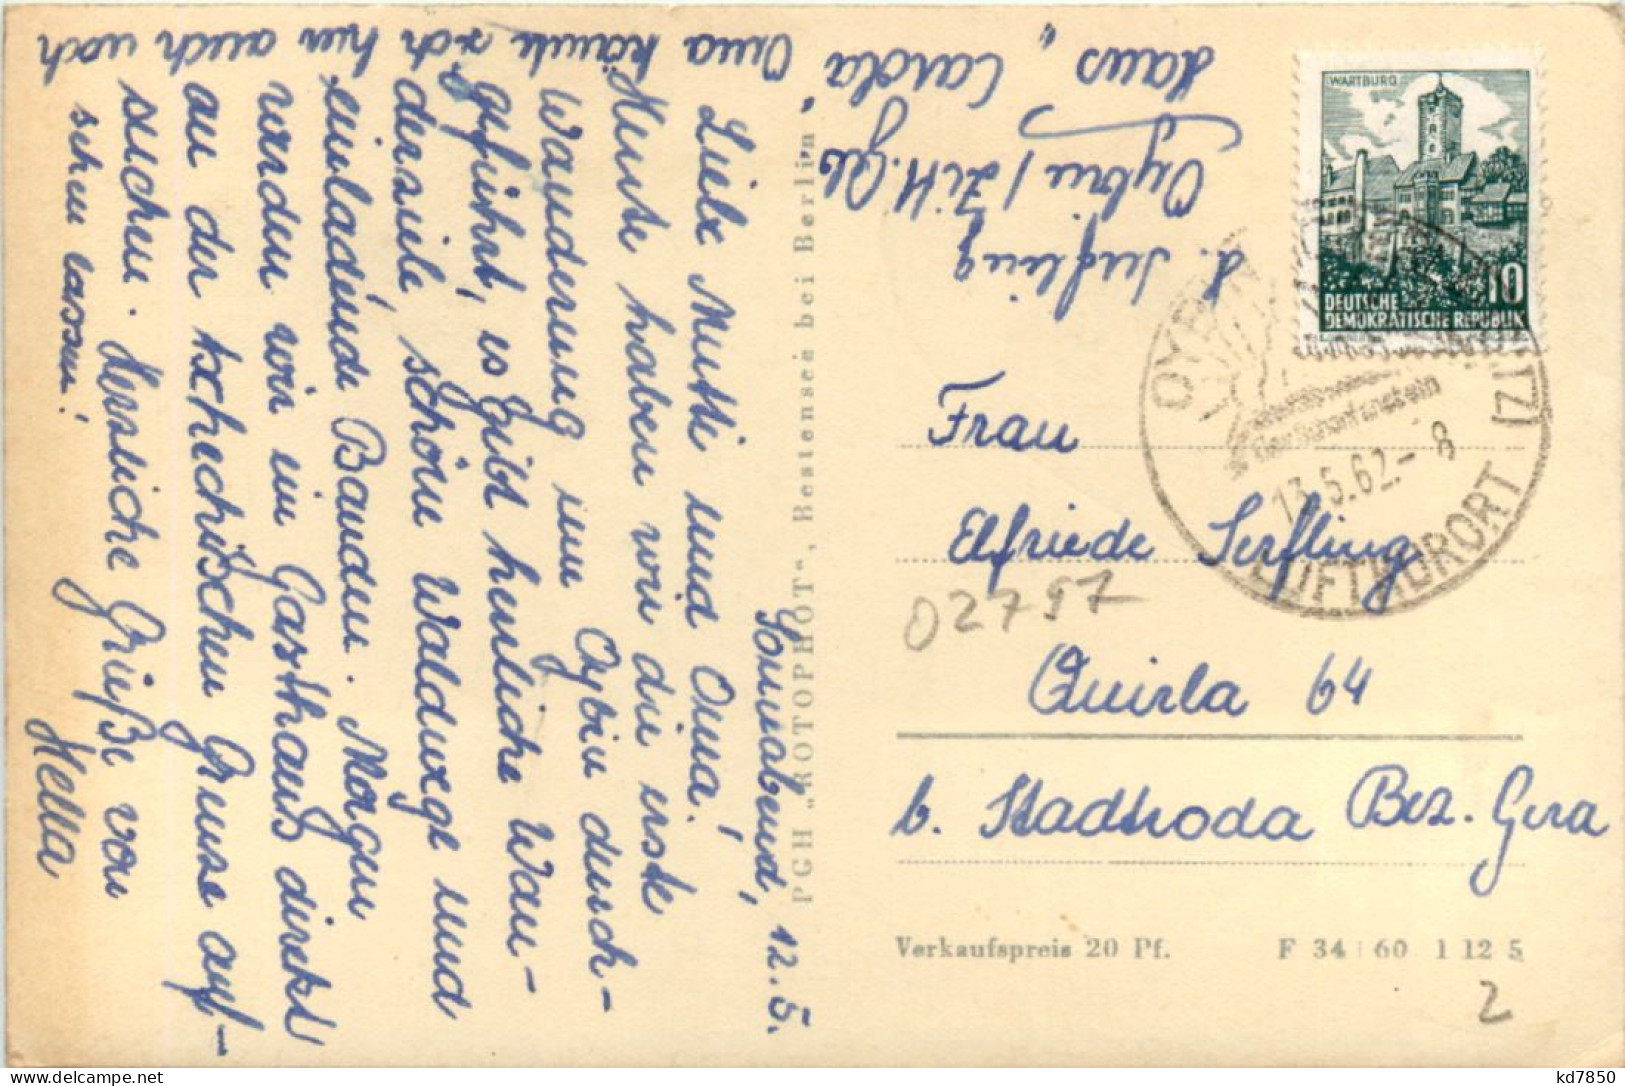 Sonnabend, 12.5.
Liebe Mutti und Oma!
Heute haben wir die erste
Wanderung im Oybin durch-
geführt, es gibt herrliche Wan-
derziele, schöne Waldwege und
einladende Bauden. Morgen
werden wir im Gasthaus direkt
an der tschechischen Grenze auf-
suchen. Herzliche Grüße von
Hella
Oma könnte sich hier auch noch
sehen lassen!
Haus „Carola"
Oybin / Zitt. Geb
PGH „ROTOPHOT", Bestensee bei Berlin
WARTBURG
10
DEUTSCHE
DEMOKRATISCHE REPUBLIK
OYBIN
Der Scharfenstein
13.5.62.-8
LUFTKURORT
Frau
Elfriede Serfling
02797
Quirla 64
b. Stadtroda Bez. Gera
Verkaufspreis 20 Pf.
F 34 60 1 12 5
2